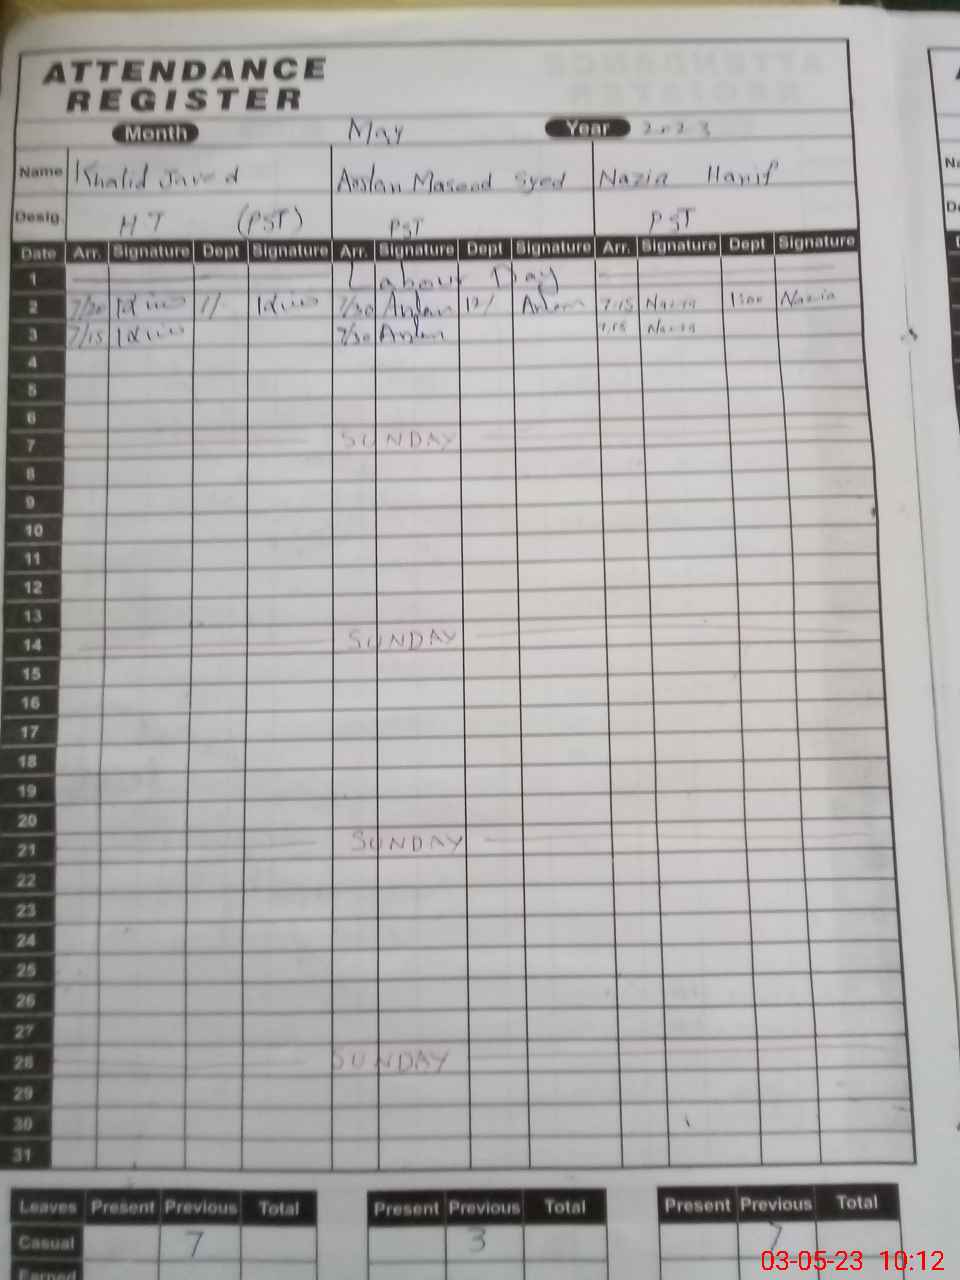 ATTENDANCE
REGISTER
Month May Year 2023
Name Khalid Javed Arslan Masood Syed Nazia Hanif
Desig. HT (PST) PST PST
Date Arr. Signature Dept Signature Arr. Signature Dept Signature Arr. Signature Dept Signature
1 Labour Day
2 7/30 1/ 7/30 Arslan 12/ Arslan 7.15 Nazia 1:00 Nazia
3 7/15 7/30 Arslan 7.15 Nazia
4
5
6
7 SUNDAY
8
9
10
11
12
13
14 SUNDAY
15
16
17
18
19
20
21 SUNDAY
22
23
24
25
26
27
28 SUNDAY
29
30
31
Leaves Present Previous Total Present Previous Total Present Previous Total
Casual 7 3 7
Earned
03-05-23 10:12